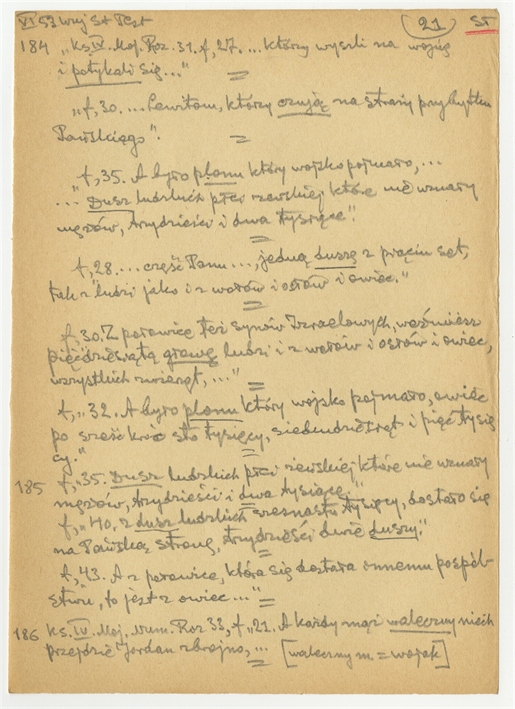 VI 53 wuj St Test (21) ST
184 „Ks IV. Moj. Roz. 31. f, 27. ... którzy wyszli na wojnę
i potykali się..."
„f, 30. ... Lewitom, którzy czują na straży przybytku
Pańskiego".
„f, 35. A było plonu który wojsko pojmało, ...
... Dusz ludzkich płci żewskiej które nie uznały
mężów, trzydzieści i dwa tysiące".
f, 28. ... część Panu ..., jedną duszę z pięciu set,
tak z ludzi jako i z wołów i osłów i owiec."
f, 30. Z połowicę też synów Izraelowych, weźmiesz
pięćdziesiątą głowę ludzi i z wołów i osłów i owiec,
wszystkich zwierząt, ..."
f, „32. A było plonu który wojsko pojmało, owiec
po sześć kroć sto tysięcy, siedmdziesiąt i pięć tysię
cy."
185 f, „35. Dusz ludzkich płci żewskiej które nie uznały
mężów, trzydzieści i dwa tysiące."
f, „40. z dusz ludzkich szesnastu tysięcy, dostało się
na Pańską stronę, trzydzieści dwie duszy."
f, „43. A z połowice, która się dostała innemu pospól-
stwu, to jest z owiec ..."
186 Ks. IV. Moj. Num. Roz 33, f „21. A każdy mąż waleczny niech
przejdzie Jordan zbrojno, ... [waleczny m. = wojak]